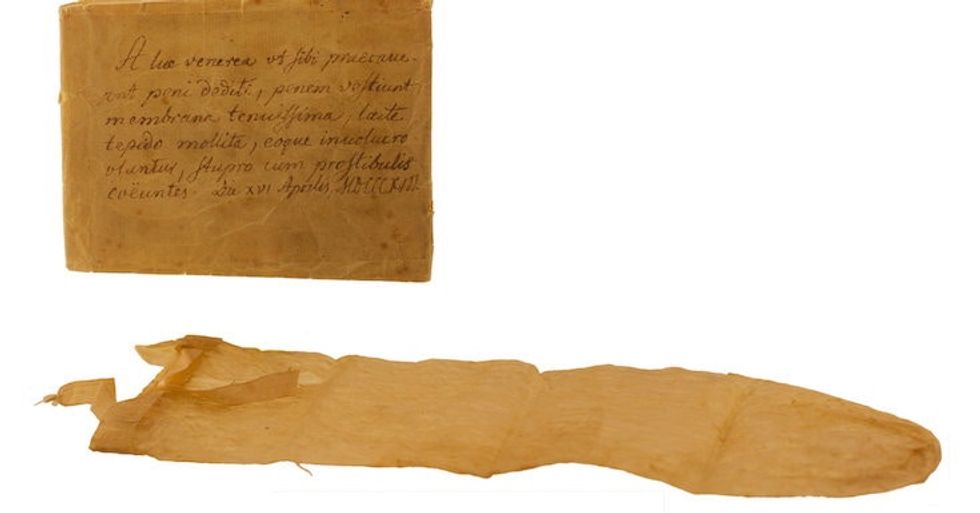 A lue venerea ut sibi praecave-
ant peni dediti, penem vestiunt
membrana tenuissima, lacte
tepido mollita, eoque involucro
utuntur, stupro cum prostibulis
coëuntes. Die XVI Aprilis,